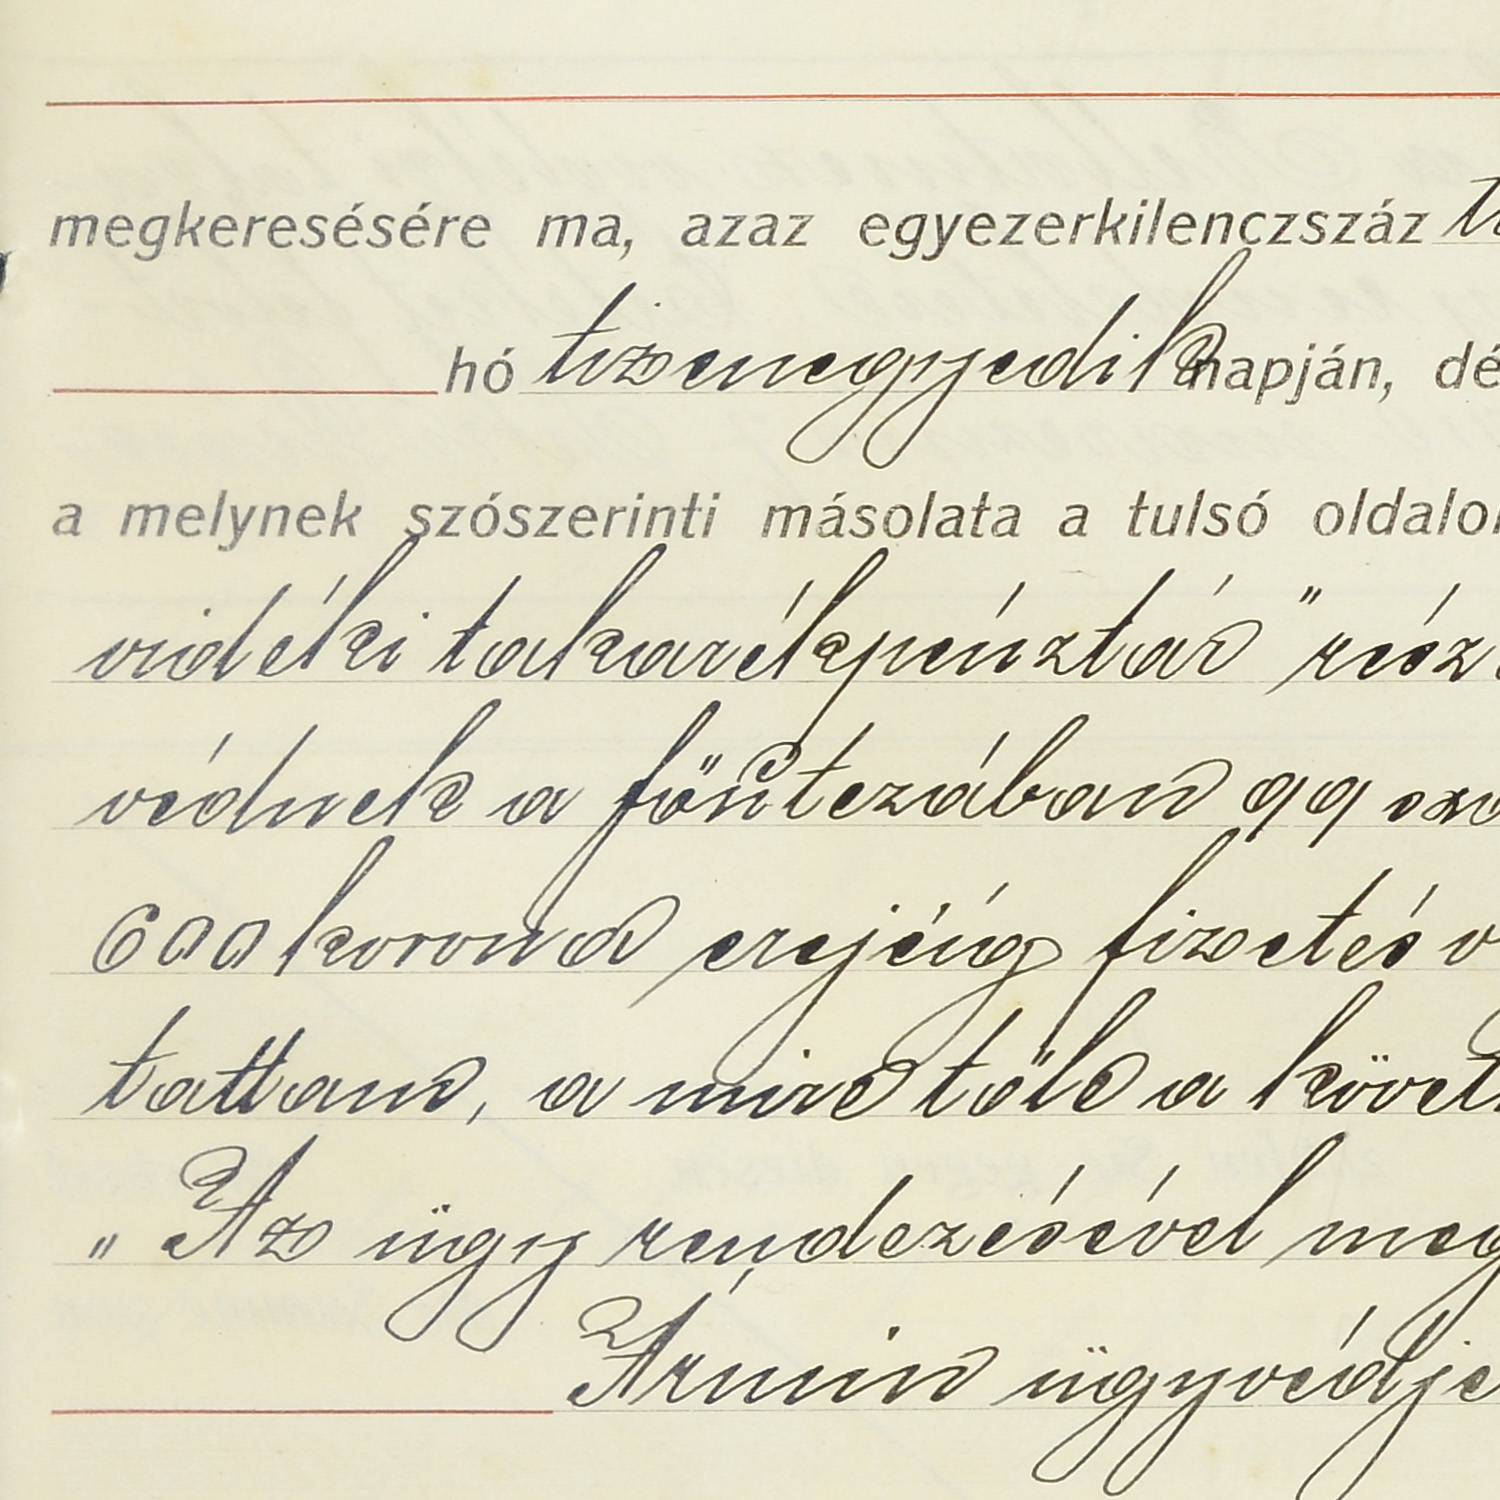 megkeresésére ma, azaz egyezerkilenczszáz
hó tizenegyedik napján, dé
a melynek szószerinti másolata a tulsó oldalon
vidéki takarékpénztár" rész
védnek a főntezában 99
600 korona erejéig fizetés v
tattam, a mire tőle a követ
„Az ügy rendezésével meg
Ármin ügyvédje